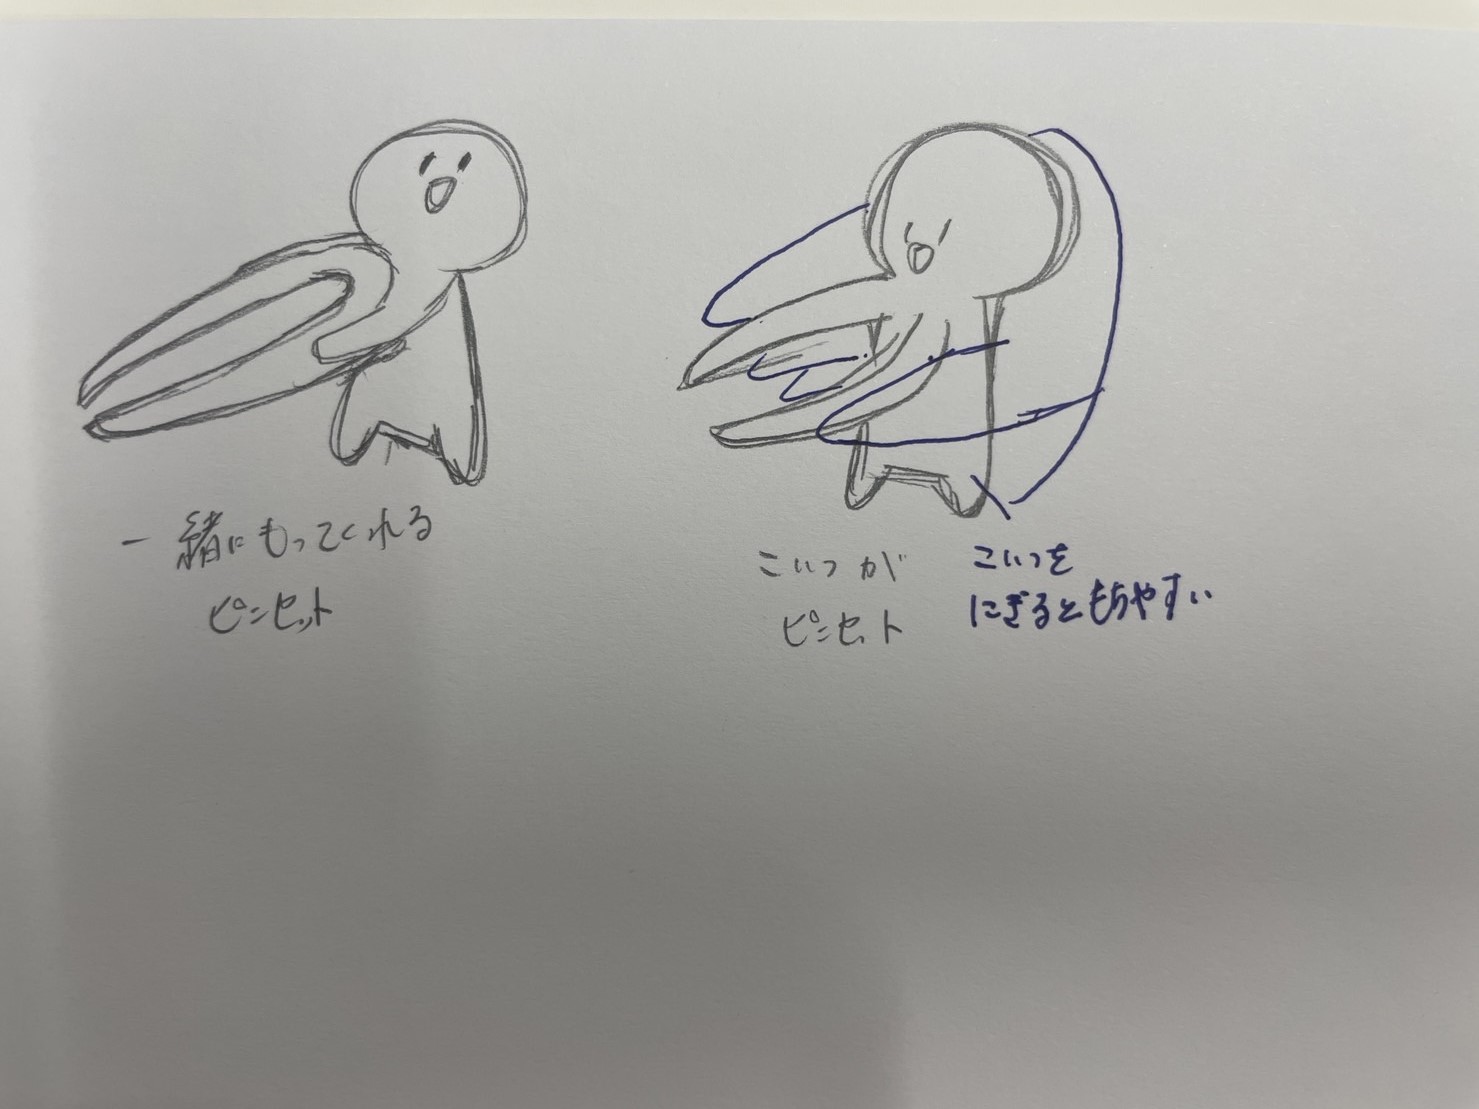 一緒にもってくれる
ピンセット
こいつが
ピンセット
こいつを
にぎるともちやすい